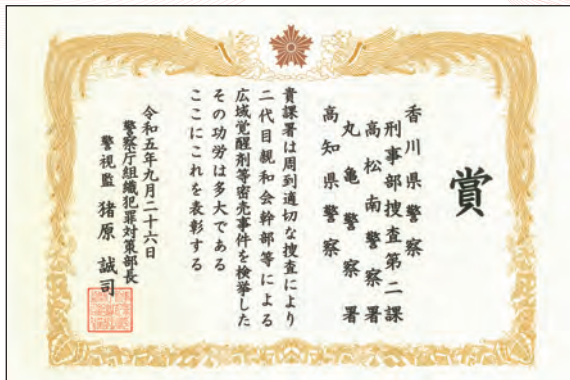 賞
香川県警察
刑事部捜査第二課
高松南警察署
丸亀警察署
高知県警察
貴課署は周到適切な捜査により
二代目親和会幹部等による
広域覚醒剤等密売事件を検挙した
その功労は多大である
ここにこれを表彰する
令和五年九月二十六日
警察庁組織犯罪対策部長
警視監 猪原誠司